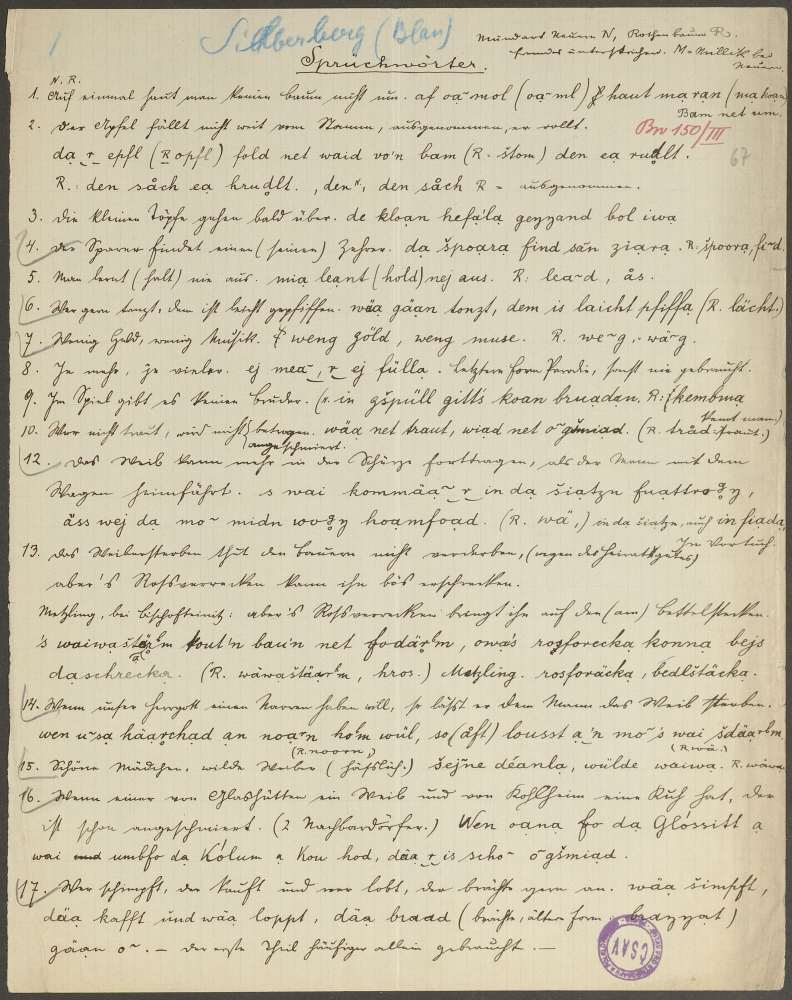 1 Silberberg (Blau) Mundart Neuern N, Rothenbaum R.
fremdes unterstrichen. M = Millik bei Neuern.
Sprüchwörter.
N. R.
1. Auf einmal haut man keinen baum nicht um. af oa~mol (oa~ml) haut mạ rạn (mạ koạn)
Bam net um.
2. der Apfel fällt nicht weit vom Stamm, ausgenommen, er rollt. Bn 150/III
dạ r epfl (R opfl) fold net waid vo'n bam (R. štom) den eạ rudlt. 67
R. den såch eạ hrudlt. „den", den såch R = ausgenommen.
3. die kleinen Töpfe gehen bald über. de kloạn hefạlạ geyyand bol iwạ
4. der Sparer findet einen (seinen) Zehrer. dạ špoạrạ find sãn ziạrạ. R. špoorạ, fi~d
5. Man lernt (halt) nie aus. miạ leạnt (hold) nej aus. R: leạ~d, ås.
6. Wer gern tanzt, dem ist leicht gepfiffen. wäạ gäạn tonzt, dem is laicht pfiffạ (R. lächt.)
7. Wenig Geld, wenig Musik. weng göld, weng muse. R. we~g. wä~g.
8. Je mehr, je vieler. ej meạ~ r ej füllạ. letztere Form Parodie, sonst nie gebraucht.
9. Im Spiel gibt es keinen bruder. in gšpüll gitt's koan bruạdạn. R: (kembmạ
(kennt man)
10. Wer nicht traut, wird nicht betrogen. wäạ net traut, wiạd net o~gšmiạd. (R. tråd. traut.)
angeschmiert.
12. das Weib kann mehr in der Schürze forttragen, als der Mann mit dem
Wagen heimführt. s wai kommäạ~ r in dạ šiạtzn fuạttrogy,
äss wej dạ mo~ midn wogy hoạmfoạd. (R. wä,) in da šiạtzn, auch in fiạdạ
Im Vortuch.
13. das Weibersterben thut den bauern nicht verderben, (wegen des Heiratsgutes)
aber's Rossverrecken kann ihn bös erschrecken.
Metzling, bei Bischofteinitz: aber's Rossverrecken bringt ihn auf den (am) bettelstecken.
's waiwạštäạrbm tout'n bau'n net fodärbm, owạ's rosforeckạ konnạ bejs
dạschreckạ. (R. wäwạštäạrbm, hros.) Metzling. rosforäckạ, bedlštäckạ.
14. Wenn unser Herrgott einen Narren haben will, so lässt er dem Mann das Weib sterben.
wen u~sạ häạrchad ạn noạ~n hobm wül, so (åft) lousst ạ 'n mo~'s wai šdäạrbm
(R. noorn,) (R. wä.)
15. Schöne Mädchen, wilde Weiber (häßlich.) šejne déanlạ, wülde waiwạ. R. wäwạ
16. Wenn einer von Glashütten ein Weib und von Kohlheim eine Kuh hat, der
ist schon angeschmiert. (2 Nachbardörfer.) Wen oạnạ fo dạ Glóssitt ạ
wai und umbfo dạ Kólum ạ Kou hod, däạ r is scho~ o~gšmiạd.
17. Wer schimpft, der kauft und wer lobt, der brächte gern an. wäạ šimpft,
däạ kafft und wäạ loppt, däạ braad (brächte, ältere form: brayyạt)
gäạn o~. – der erste Theil häufiger allein gebraucht. —
ČSAV